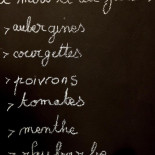 > aubergines
> courgettes
> poivrons
> tomates
> menthe
> rhubarbe